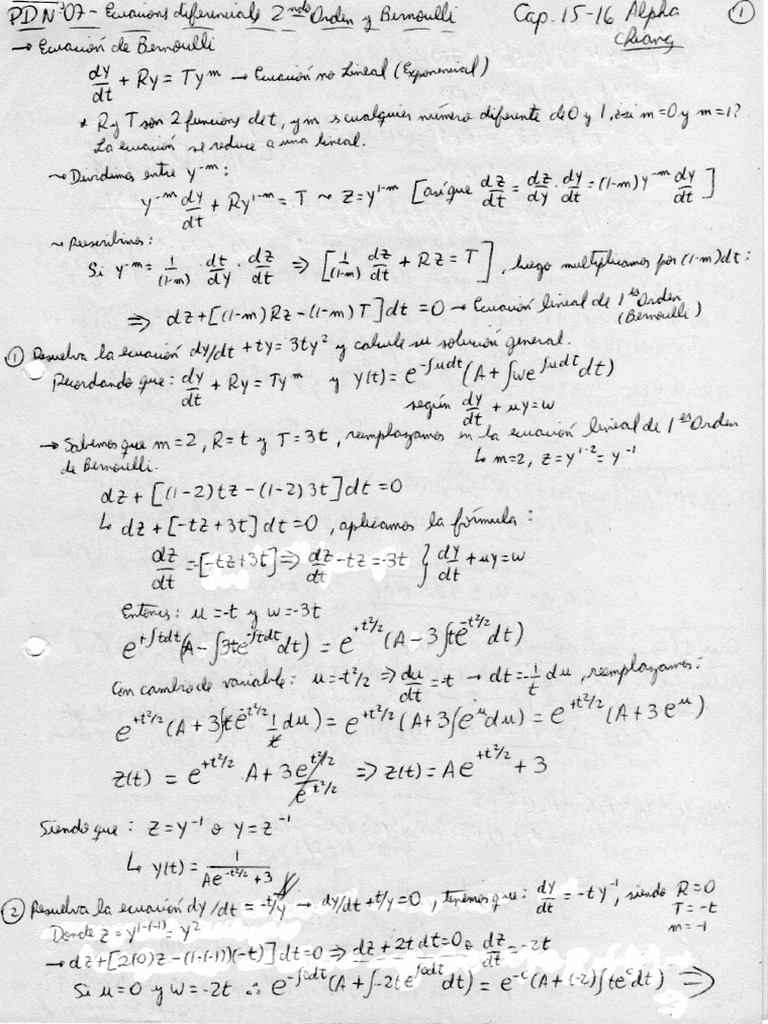 PDN°07 - Ecuacions diferencials 2ndo Orden y Bernoulli Cap. 15-16 Alpha Chiang 1
→ Ecuación de Bernoulli
dy/dt + Ry = Ty^m → Ecuación no Lineal (Exponencial)
* R y T son 2 funcions de t, y m s cualquier número diferente de 0 y 1, ¿si m=0 y m=1?
La ecuación se reduce a una lineal.
~ Dividimos entre y^-m:
y^-m dy/dt + Ry^1-m = T ~ Z = y^1-m [así que dz/dt = dz/dy · dy/dt = (1-m)y^-m dy/dt]
~ Reescribimos:
Si y^-m = 1/(1-m) · dt/dy · dz/dt ⇒ [1/(1-m) dz/dt + RZ = T], luego multiplicamos por (1-m)dt:
⇒ dz + [(1-m)Rz - (1-m)T]dt = 0 → Ecuación lineal de 1er Orden (Bernoulli)
① Resuelva la ecuación dy/dt + ty = 3ty² y calcule su solución general.
Recordando que: dy/dt + Ry = Ty^m y y(t) = e^-∫udt (A + ∫we^∫udt dt)
según dy/dt + uy = w
→ Sabemos que m=2, R=t y T=3t, reemplazamos en la ecuación lineal de 1er Orden
de Bernoulli. ↳ m=2, z = y^1-2 = y^-1
dz + [(1-2)tz - (1-2)3t]dt = 0
↳ dz + [-tz + 3t]dt = 0, aplicamos la fórmula:
dz/dt = -[-tz+3t] ⇒ dz/dt - tz = -3t } dy/dt + uy = w
Entonces: u = -t y w = -3t
e^+∫tdt (A - ∫3te^-∫tdt dt) = e^+t²/2 (A - 3∫te^-t²/2 dt)
Con cambio de variable: u = -t²/2 ⇒ du/dt = -t → dt = -1/t du, reemplazamos:
e^+t²/2 (A + 3∫te^-t²/2 1/t du) = e^+t²/2 (A + 3∫e^u du) = e^+t²/2 (A + 3e^u)
z(t) = e^+t²/2 A + 3 e^t²/2 / e^t²/2 ⇒ z(t) = Ae^+t²/2 + 3
Siendo que: z = y^-1 o y = z^-1
↳ y(t) = 1/(Ae^-t²/2 + 3)
② Resuelva la ecuación dy/dt = -t/y → dy/dt + t/y = 0, tenemos que: dy/dt = -ty^-1, siendo R=0
T=-t
m=-1
Donde z = y^1-(-1) = y²
→ dz + [2(0)z - (1-(-1))(-t)]dt = 0 ⇒ dz + 2tdt = 0 o dz/dt = -2t
Si u=0 y w=-2t ∴ e^-∫0dt (A + ∫-2te^∫0dt dt) = e^-c (A + (-2)∫te^c dt) ⇒